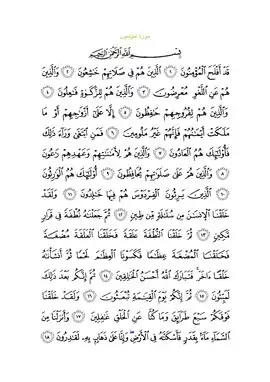 سورة المؤمنون
بِسْمِ اللَّهِ الرَّحْمَٰنِ الرَّحِيمِ
قَدْ أَفْلَحَ الْمُؤْمِنُونَ ١ الَّذِينَ هُمْ فِي صَلَاتِهِمْ خَاشِعُونَ ٢ وَالَّذِينَ
هُمْ عَنِ اللَّغْوِ مُعْرِضُونَ ٣ وَالَّذِينَ هُمْ لِلزَّكَاةِ فَاعِلُونَ ٤
وَالَّذِينَ هُمْ لِفُرُوجِهِمْ حَافِظُونَ ٥ إِلَّا عَلَىٰ أَزْوَاجِهِمْ أَوْ مَا
مَلَكَتْ أَيْمَانُهُمْ فَإِنَّهُمْ غَيْرُ مَلُومِينَ ٦ فَمَنِ ابْتَغَىٰ وَرَاءَ ذَٰلِكَ
فَأُولَٰئِكَ هُمُ الْعَادُونَ ٧ وَالَّذِينَ هُمْ لِأَمَانَاتِهِمْ وَعَهْدِهِمْ رَاعُونَ
٨ وَالَّذِينَ هُمْ عَلَىٰ صَلَوَاتِهِمْ يُحَافِظُونَ ٩ أُولَٰئِكَ هُمُ الْوَارِثُونَ
١٠ الَّذِينَ يَرِثُونَ الْفِرْدَوْسَ هُمْ فِيهَا خَالِدُونَ ١١ وَلَقَدْ
خَلَقْنَا الْإِنْسَانَ مِنْ سُلَالَةٍ مِنْ طِينٍ ١٢ ثُمَّ جَعَلْنَاهُ نُطْفَةً فِي قَرَارٍ
مَكِينٍ ١٣ ثُمَّ خَلَقْنَا النُّطْفَةَ عَلَقَةً فَخَلَقْنَا الْعَلَقَةَ مُضْغَةً
فَخَلَقْنَا الْمُضْغَةَ عِظَامًا فَكَسَوْنَا الْعِظَامَ لَحْمًا ثُمَّ أَنْشَأْنَاهُ
خَلْقًا آخَرَ فَتَبَارَكَ اللَّهُ أَحْسَنُ الْخَالِقِينَ ١٤ ثُمَّ إِنَّكُمْ بَعْدَ ذَٰلِكَ
لَمَيِّتُونَ ١٥ ثُمَّ إِنَّكُمْ يَوْمَ الْقِيَامَةِ تُبْعَثُونَ ١٦ وَلَقَدْ خَلَقْنَا
فَوْقَكُمْ سَبْعَ طَرَائِقَ وَمَا كُنَّا عَنِ الْخَلْقِ غَافِلِينَ ١٧ وَأَنْزَلْنَا مِنَ
السَّمَاءِ مَاءً بِقَدَرٍ فَأَسْكَنَّاهُ فِي الْأَرْضِ وَإِنَّا عَلَىٰ ذَهَابٍ بِهِ لَقَادِرُونَ ١٨